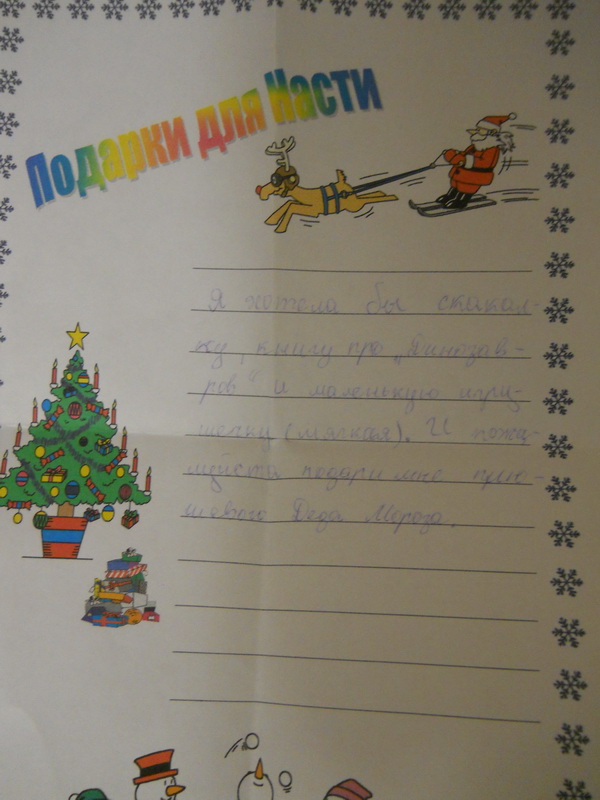 Подарки для Насти
Я хотела бы скакал-
ку, книгу про „Динозав-
ров“ и маленькую игру-
шечку (мягкая). И пожа-
луйста подари мне плю-
шевого Деда Мороза.